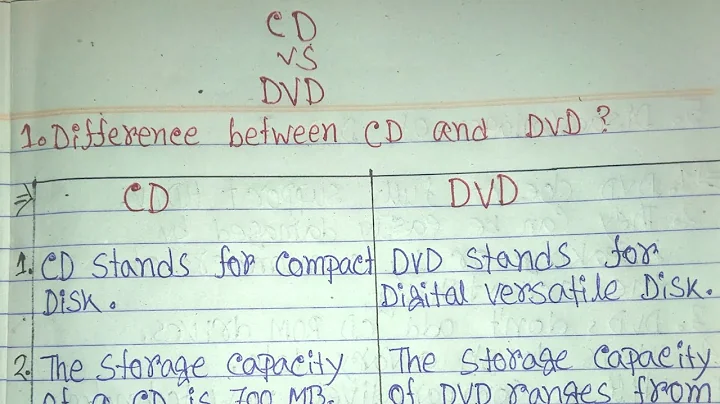 CD
VS
DVD
1. Difference between CD and DVD?
⇒ CD DVD
1. CD stands for compact DVD stands for
Disk. Digital versatile Disk.
2. The storage capacity The storage capacity
of a CD is 700 MB. of DVD ranges from